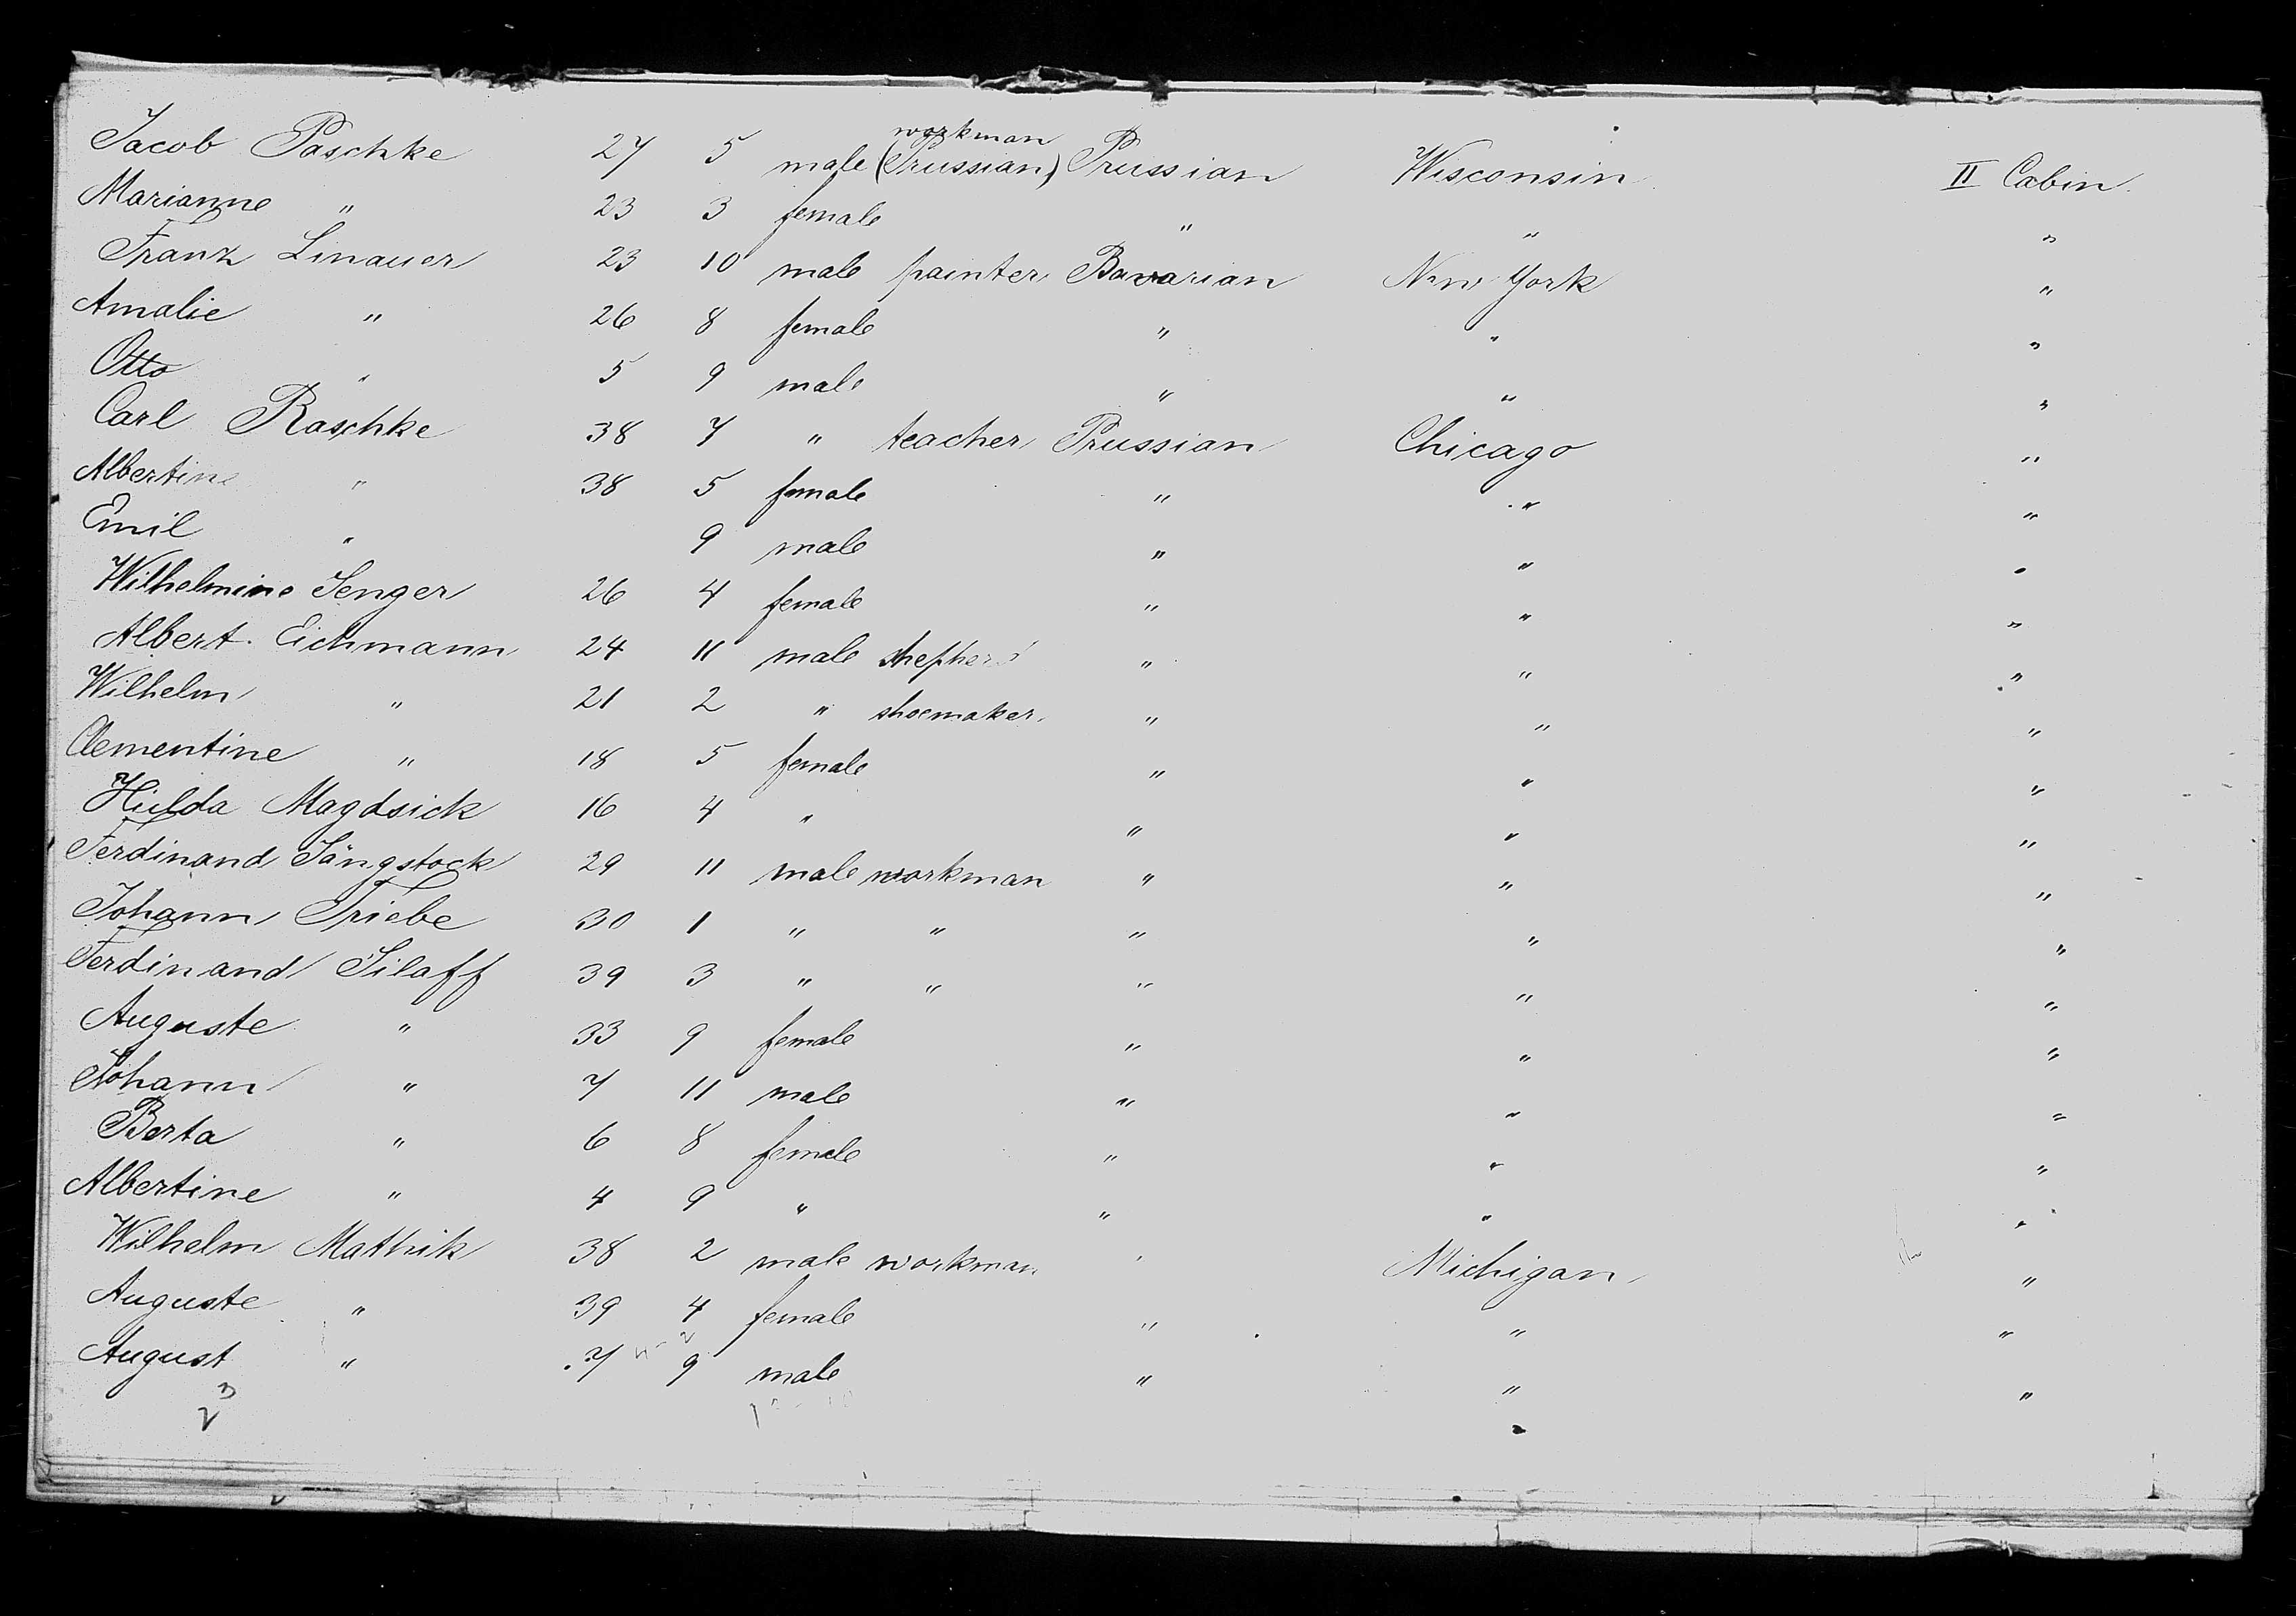 Jacob Paschke 27 5 male workman (Prussian) Prussian Wisconsin II Cabin.
Marianne " 23 3 female " " "
Franz Linauer 23 10 male painter Bavarian New York "
Amalie " 26 8 female " " "
Otto " 5 9 male " " "
Carl Raschke 38 7 " teacher Prussian Chicago "
Albertine " 38 5 female " " "
Emil " 9 male " " "
Wilhelmine Senger 26 4 female " " "
Albert Eichmann 24 11 male shepherd " " "
Wilhelm " 21 2 " shoemaker " " "
Clementine " 18 5 female " " "
Hulda Magdsick 16 4 " " " "
Ferdinand Sängstock 29 11 male workman " " "
Johann Triebe 30 1 " " " " "
Ferdinand Silaff 39 3 " " " " "
Auguste " 33 9 female " " "
Johann " 7 11 male " " "
Berta " 6 8 female " " "
Albertine " 4 9 " " " "
Wilhelm Mathik 38 2 male workman " Michigan "
Auguste " 39 4 female " " "
August " 7 9 male " " "